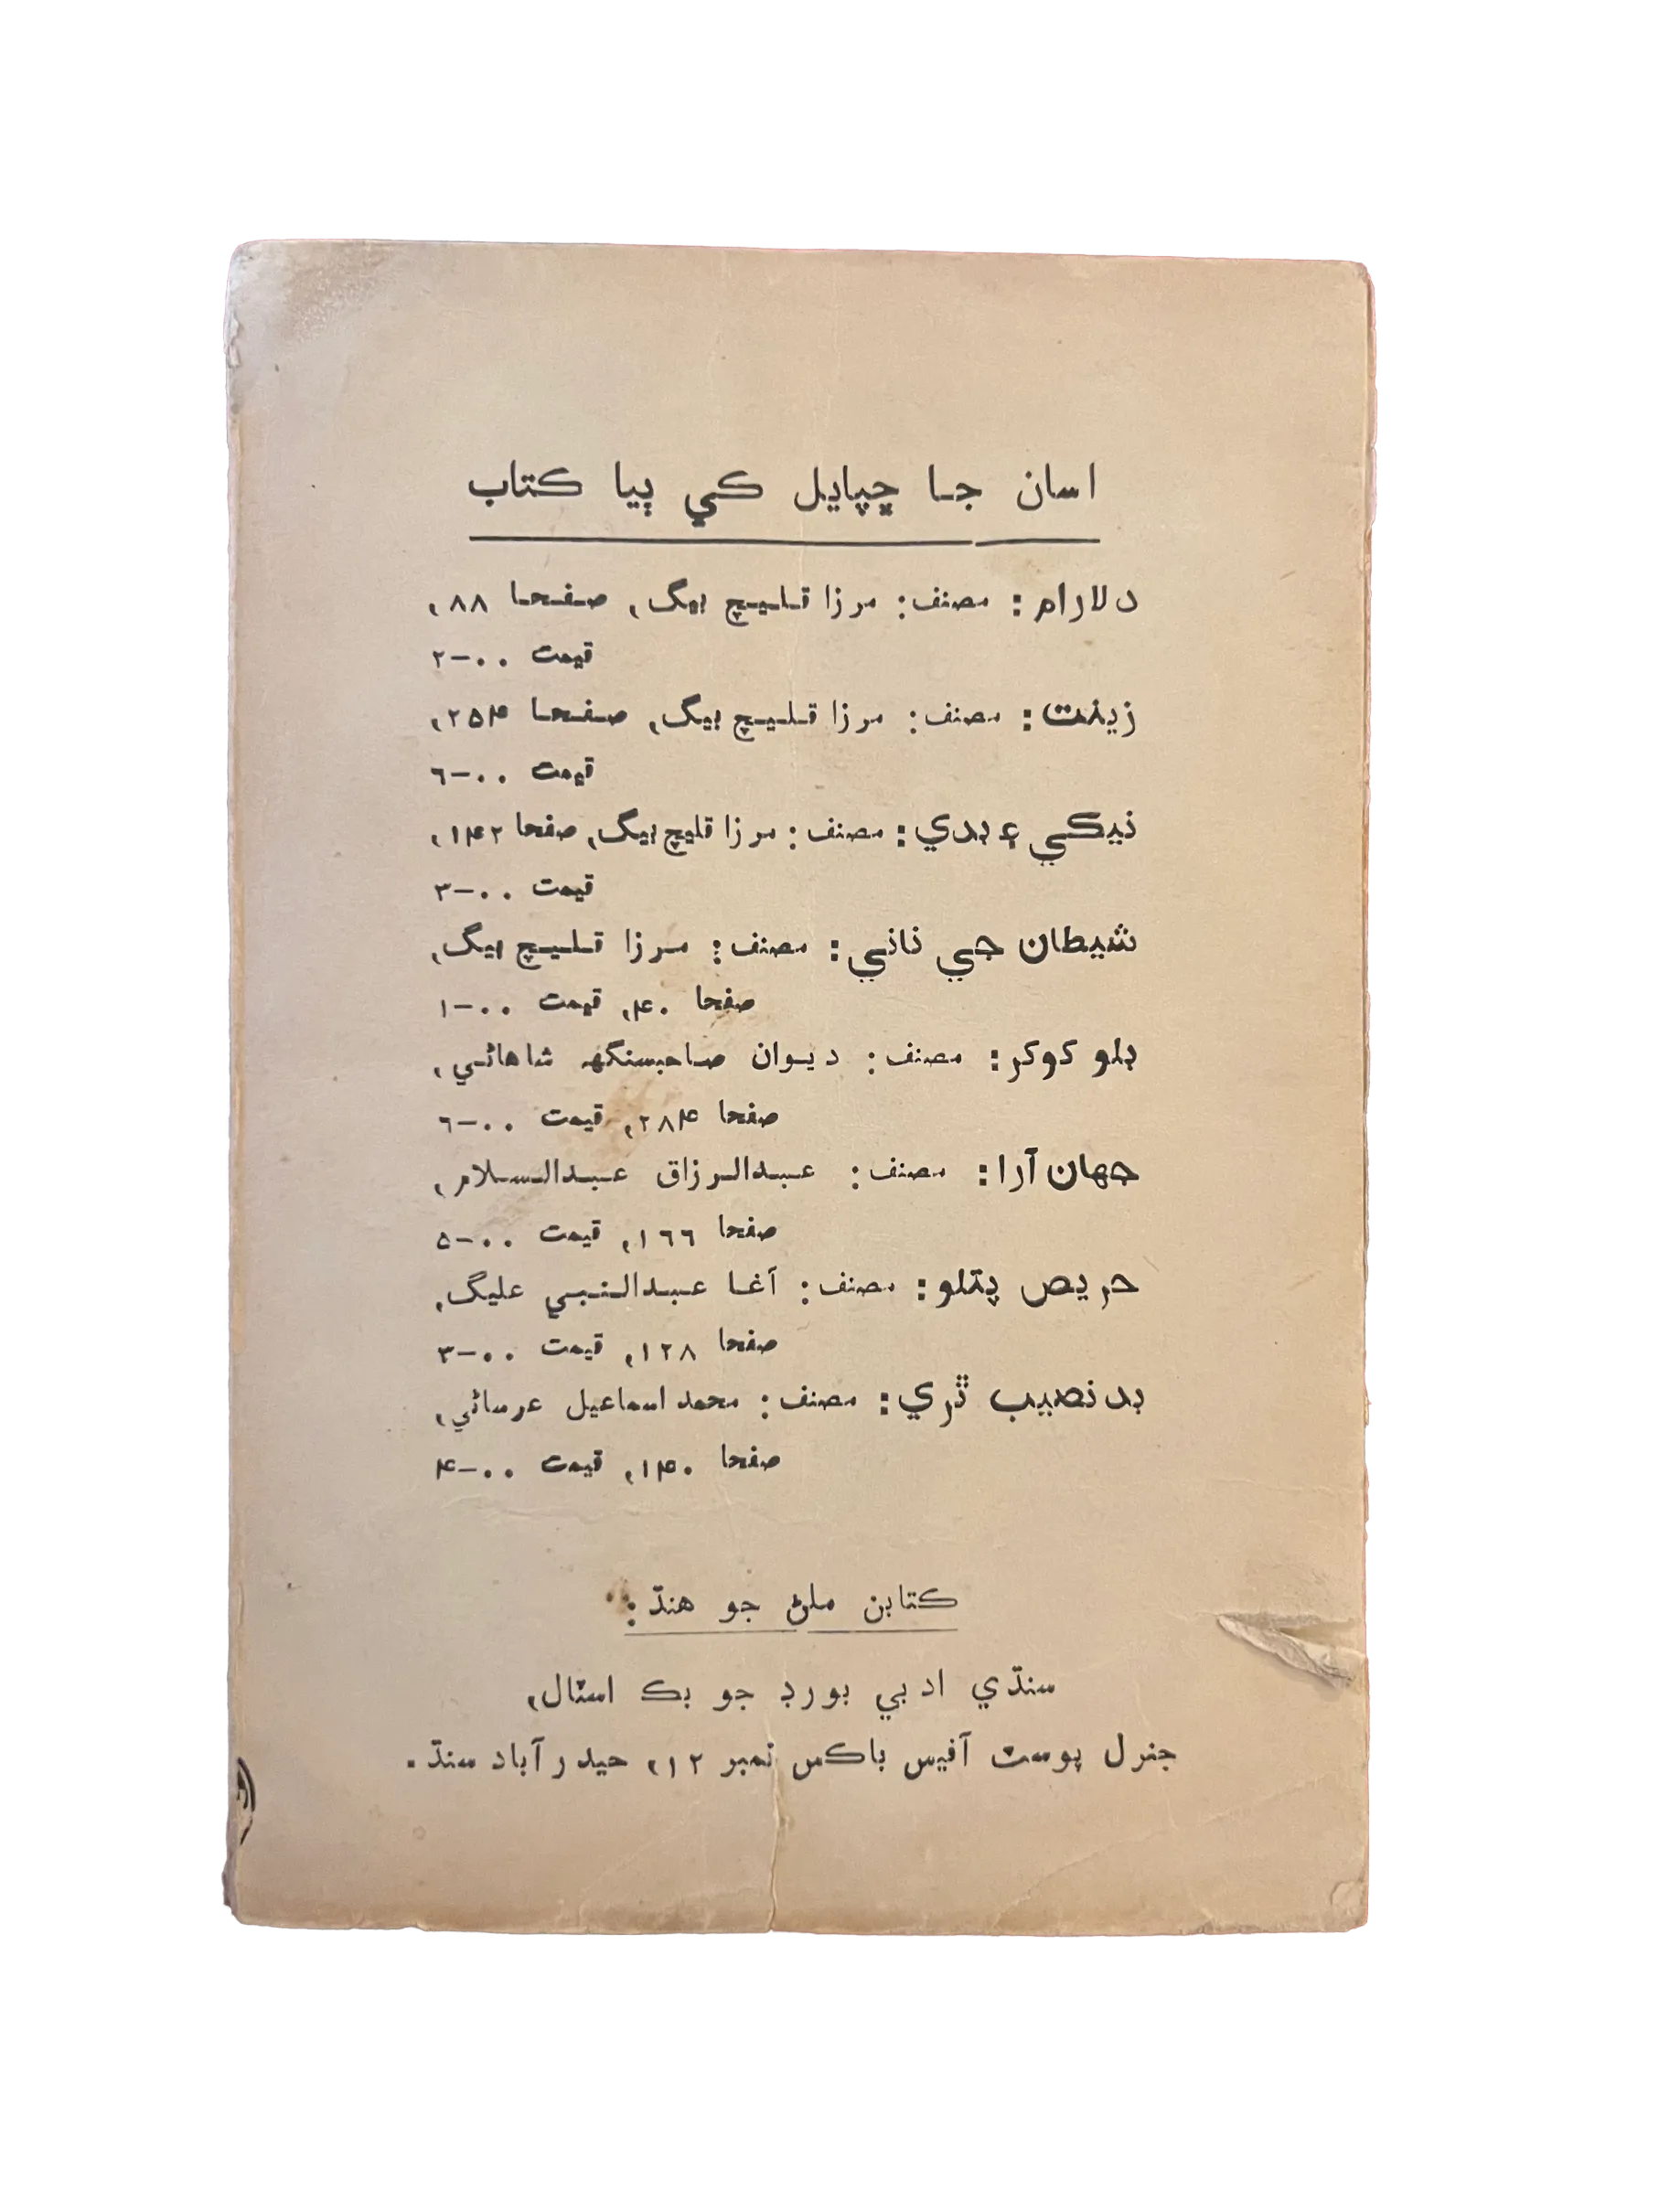 اسان جا ڇپايل ڪي ٻيا ڪتاب
دلارام: مصنف: مرزا قليچ بيگ, صفحا ۸۸,
قيمت ۰۰-۲
زينت: مصنف: مرزا قليچ بيگ, صفحا ۲۵۴,
قيمت ۰۰-۶
نيڪي ۽ بدي: مصنف: مرزا قليچ بيگ, صفحا ۱۴۲,
قيمت ۰۰-۳
شيطان جي ناني: مصنف: مرزا قليچ بيگ,
صفحا ۴۰, قيمت ۰۰-۱
ٻلو کوکر: مصنف: ديوان صاحبسنگهہ شاهاڻي,
صفحا ۲۸۴, قيمت ۰۰-۶
جهان آرا: مصنف: عبدالرزاق عبدالسلام,
صفحا ۱۶۶, قيمت ۰۰-۵
حريص پتلو: مصنف: آغا عبدالنبي عليگ,
صفحا ۱۲۸, قيمت ۰۰-۳
بدنصيب ٿري: مصنف: محمد اسماعيل عرساڻي,
صفحا ۱۴۰, قيمت ۰۰-۴
ڪتابن ملڻ جو هنڌ:
سنڌي ادبي بورڊ جو بڪ اسٽال,
جنرل پوسٽ آفيس باڪس نمبر ۱۲, حيدرآباد سنڌ.